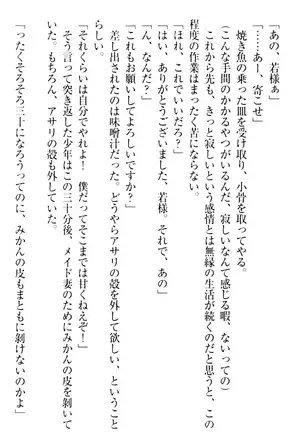 「あの、若様ぁ」
「……あー、寄こせ」
焼き魚の乗った皿を受け取り、小骨を取ってやる。
（こんな手間のかかるやつがいるんだ、寂しいなんて感じる暇、ないっての）
これから先も、きっと寂しいという感情とは無縁の生活が続くのだと思うと、この
程度の作業はまったく苦にならない。
「ほれ、これでいいだろ？」
「はい、ありがとうございました、若様。それで、あの」
「ん、なんだ？」
「これもお願いしてよろしいですか？」
差し出されたのは味噌汁だ。どうやらアサリの殻を外してほしい、ということ
「それくらいは自分でやれよ！　僕だってそこまでは甘くねえぞ！」
そう言って突き返した少年はこの三十分後、メイド妻のためにみかんの皮を剥いて
いた。もちろん、アサリの殻も外していた。
「ったくそろそろ三十になろうってのに、みかんの皮もまともに剥けないのかよ」